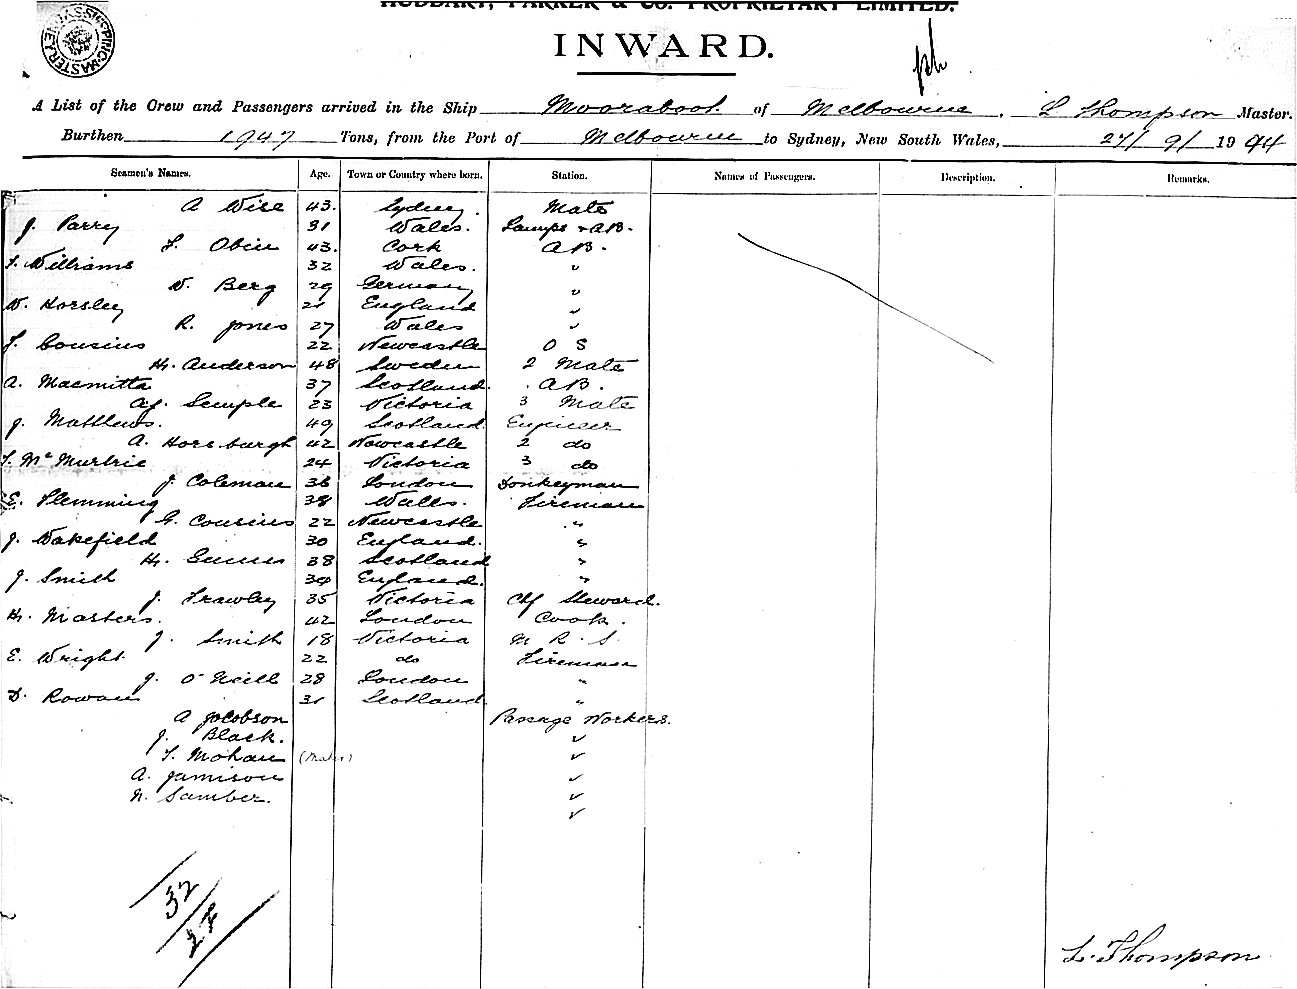 HUDDART, PARKER & CO. PROPRIETARY LIMITED.
INWARD.
A List of the Crew and Passengers arrived in the Ship Moorabool of Melbourne, L Thompson Master.
Burthen 1947 Tons, from the Port of Melbourne to Sydney, New South Wales, 27/9/1944
Seamen's Names. Age. Town or Country where born. Station. Names of Passengers. Description. Remarks.
A Wise 43. Sydney. Mate
J. Parry 31 Wales. Lamps & AB.
43. Cork AB.
T. Williams 32 Wales. "
W. Berg 29 Germany "
W. Horsley 21 England "
R. Jones 27 Wales "
T. Cousins 22 Newcastle O S
H. Anderson 48 Sweden 2 Mate
A. Macmitta 37 Scotland. AB.
Aj. Semple 23 Victoria 3 Mate
J. Matthews. 49 Scotland Engineer
A. Horsburgh 42 Newcastle 2 do
T. McMurtrie 24 Victoria 3 do
J Coleman 36 London Donkeyman
E. Flemming 38 Wales. Fireman
G. Cousins 22 Newcastle "
J. Wakefield 30 England. "
H. 38 Scotland "
J. Smith 34 England. "
J. Frawley 35 Victoria Chf Steward.
H. Masters. 42 London Cook.
J. Smith 18 Victoria M R S.
E. Wright. 22 do Fireman
J. O'Neill 28 London "
D. Rowan 31 Scotland "
A Jacobson Passage Workers.
J. Black. "
T. Mohan (Mate) "
A. Jamison "
N. Samber. "
"
32
27
L. Thompson